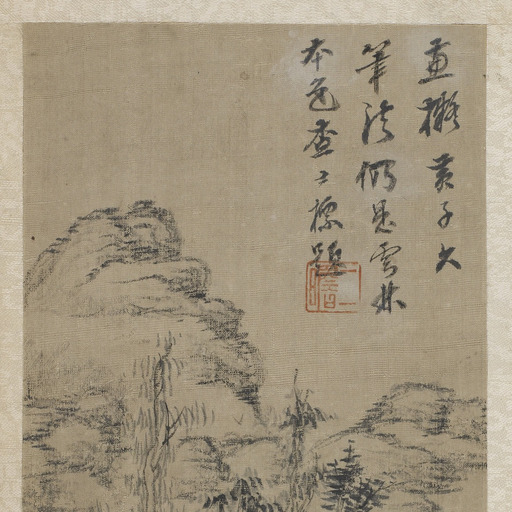 畫擬黃子久
筆法仍是雲林
本色查士標題